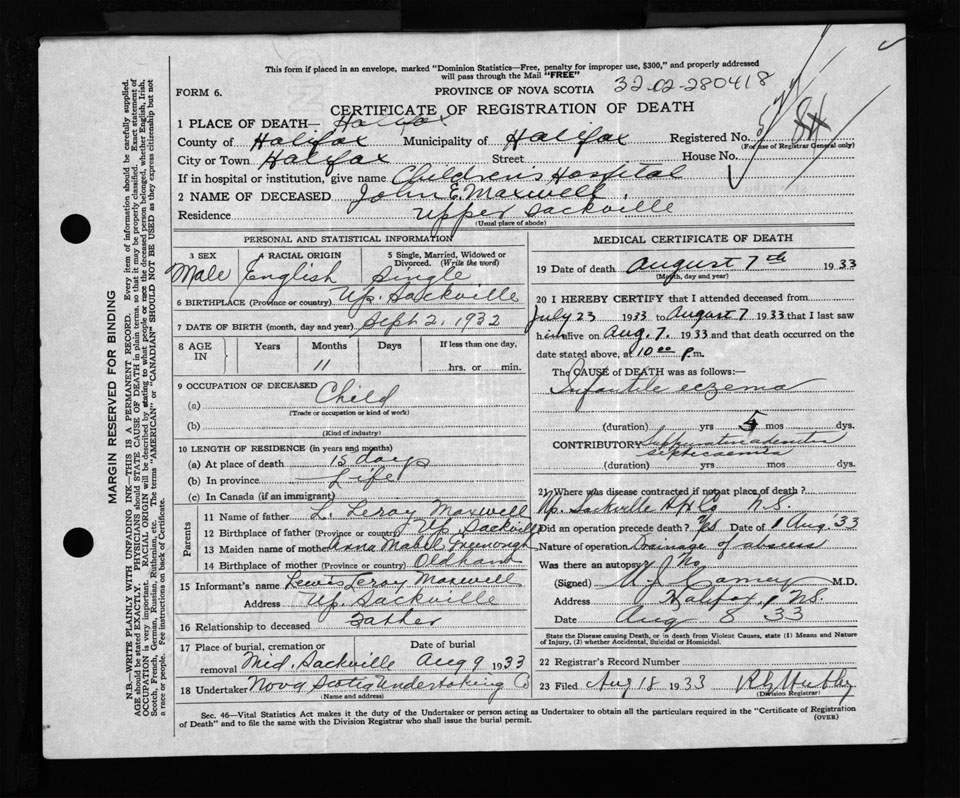 This form if placed in an envelope, marked "Dominion Statistics—Free, penalty for improper use, $300," and properly addressed
will pass through the Mail "FREE"
32-02-280418
FORM 6.
PROVINCE OF NOVA SCOTIA
CERTIFICATE OF REGISTRATION OF DEATH
84
1 PLACE OF DEATH— Halifax
County of Halifax Municipality of Halifax Registered No.
(For use of Registrar General only)
City or Town Halifax Street House No.
If in hospital or institution, give name Children's Hospital
2 NAME OF DECEASED John E. Maxwell
Residence Upper Sackville
(Usual place of abode)
PERSONAL AND STATISTICAL INFORMATION
3 SEX 4 RACIAL ORIGIN 5 Single, Married, Widowed or
Divorced. (Write the word)
Male English Single
6 BIRTHPLACE (Province or country) Up. Sackville
7 DATE OF BIRTH (month, day and year) Sept 2, 1932
8 AGE IN Years Months Days If less than one day,
11 hrs. or min.
9 OCCUPATION OF DECEASED
(a) Child
(Trade or occupation or kind of work)
(b)
(Kind of industry)
10 LENGTH OF RESIDENCE (in years and months)
(a) At place of death 15 days
(b) In province Life
(c) In Canada (if an immigrant)
Parents
11 Name of father L. Leroy Maxwell
12 Birthplace of father (Province or country) Up. Sackville
13 Maiden name of mother Anna Mabel Greenough
14 Birthplace of mother (Province or country) Oldham
15 Informant's name Lewis Leroy Maxwell
Address Up. Sackville
16 Relationship to deceased Father
17 Place of burial, cremation or Date of burial
removal Mid. Sackville Aug 9 1933
18 Undertaker Nova Scotia Undertaking Co
Name and address
MEDICAL CERTIFICATE OF DEATH
19 Date of death August 7th 1933
(Month, day and year)
20 I HEREBY CERTIFY that I attended deceased from
July 23 1933 to August 7 1933 that I last saw
him alive on Aug. 7. 1933 and that death occurred on the
date stated above, at 10 00 P.m.
The CAUSE of DEATH was as follows:—
Infantile eczema
(duration) yrs 5 mos dys.
CONTRIBUTORY Suppurative adenitis
septicaemia
(duration) yrs mos dys.
21 Where was disease contracted if not at place of death?
Up. Sackville Hfx Co N.S.
Did an operation precede death? Yes Date of 1 Aug '33
Nature of operation Drainage of abscess
Was there an autopsy? No
(Signed) M.D.
Address Halifax, N.S.
Date Aug 8 33
State the Disease causing Death, or in death from Violent Causes, state (1) Means and Nature
of Injury, (2) whether Accidental, Suicidal or Homicidal.
22 Registrar's Record Number
23 Filed Aug 18 1933
Division Registrar)
Sec. 46—Vital Statistics Act makes it the duty of the Undertaker or person acting as Undertaker to obtain all the particulars required in the "Certificate of Registration
of Death" and to file the same with the Division Registrar who shall issue the burial permit.
(OVER)
MARGIN RESERVED FOR BINDING
N.B.—WRITE PLAINLY WITH UNFADING INK—THIS IS A PERMANENT RECORD. Every item of information should be carefully supplied.
AGE should be stated EXACTLY. PHYSICIANS should STATE CAUSE OF DEATH in plain terms, so that it may be properly classified. Exact statement of
OCCUPATION is very important. RACIAL ORIGIN will be described by stating to what people or race the deceased person belonged, whether English, Irish,
Scotch, French, German, Russian, Ruthenian, etc. The terms "AMERICAN" or "CANADIAN" SHOULD NOT BE USED as they express citizenship but not
a race or people. Fee instructions on back of Certificate.